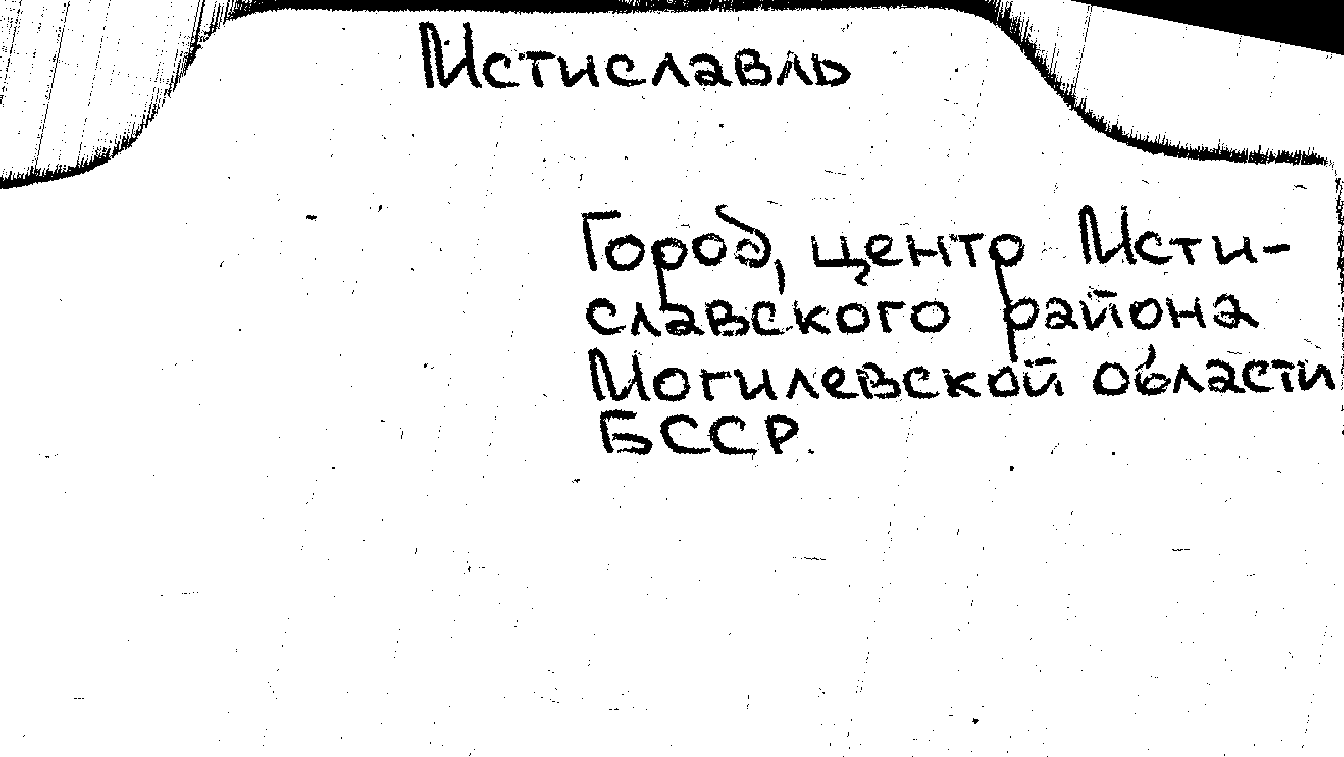 Мстиславль
Город, центр Мсти-
славского района
Могилевской области
БССР.